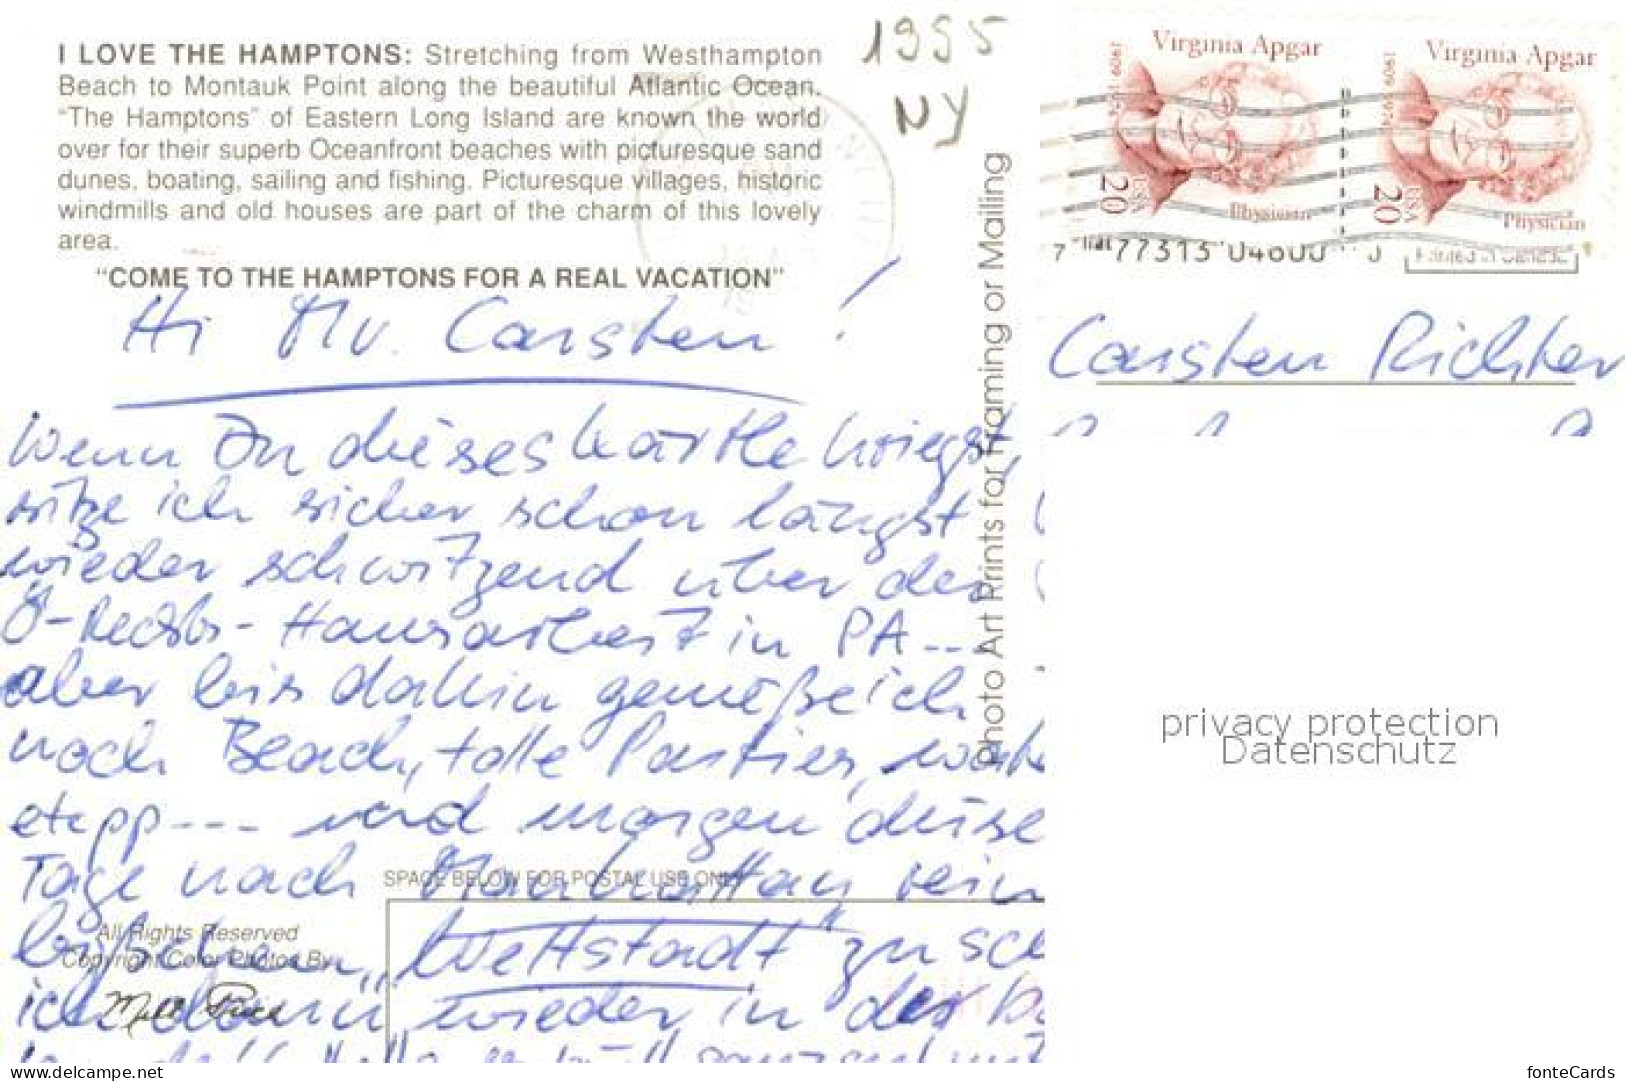 I LOVE THE HAMPTONS: Stretching from Westhampton
Beach to Montauk Point along the beautiful Atlantic Ocean.
"The Hamptons" of Eastern Long Island are known the world
over for their superb Oceanfront beaches with picturesque sand
dunes, boating, sailing and fishing. Picturesque villages, historic
windmills and old houses are part of the charm of this lovely
area.
"COME TO THE HAMPTONS FOR A REAL VACATION"
1995
NY
Hi Mr. Carsten!
Wenn Du dieses Kärtle kriegst,
sitze ich sicher schon längst
wieder schwitzend über der
Ö-Rechts-Hausarbeit in PA...
aber bis dahin genieße ich
noch Beach, tolle Parties,
etepp --- und morgen
Tage nach Manhattan
"Weltstadt" zu
ich dann wieder in der
SPACE BELOW FOR POSTAL USE ONLY
All Rights Reserved
Copyright Color Photos By
Milt Price
Photo Art Prints for Framing or Mailing
Virginia Apgar
1909-1974
20
USA
Physician
Virginia Apgar
1909-1974
20
USA
Physician
77315 04600
Printed in Canada
Carsten Richter
privacy protection
Datenschutz
delcampe.net
fonteCards